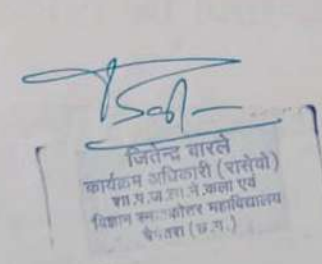 जितेन्द्र बारले
कार्यक्रम अधिकारी (रासेयो)
शा.पं.ज.ला.ने.कला एवं
विज्ञान स्नातकोत्तर महाविद्यालय
बेमेतरा (छ.ग.)